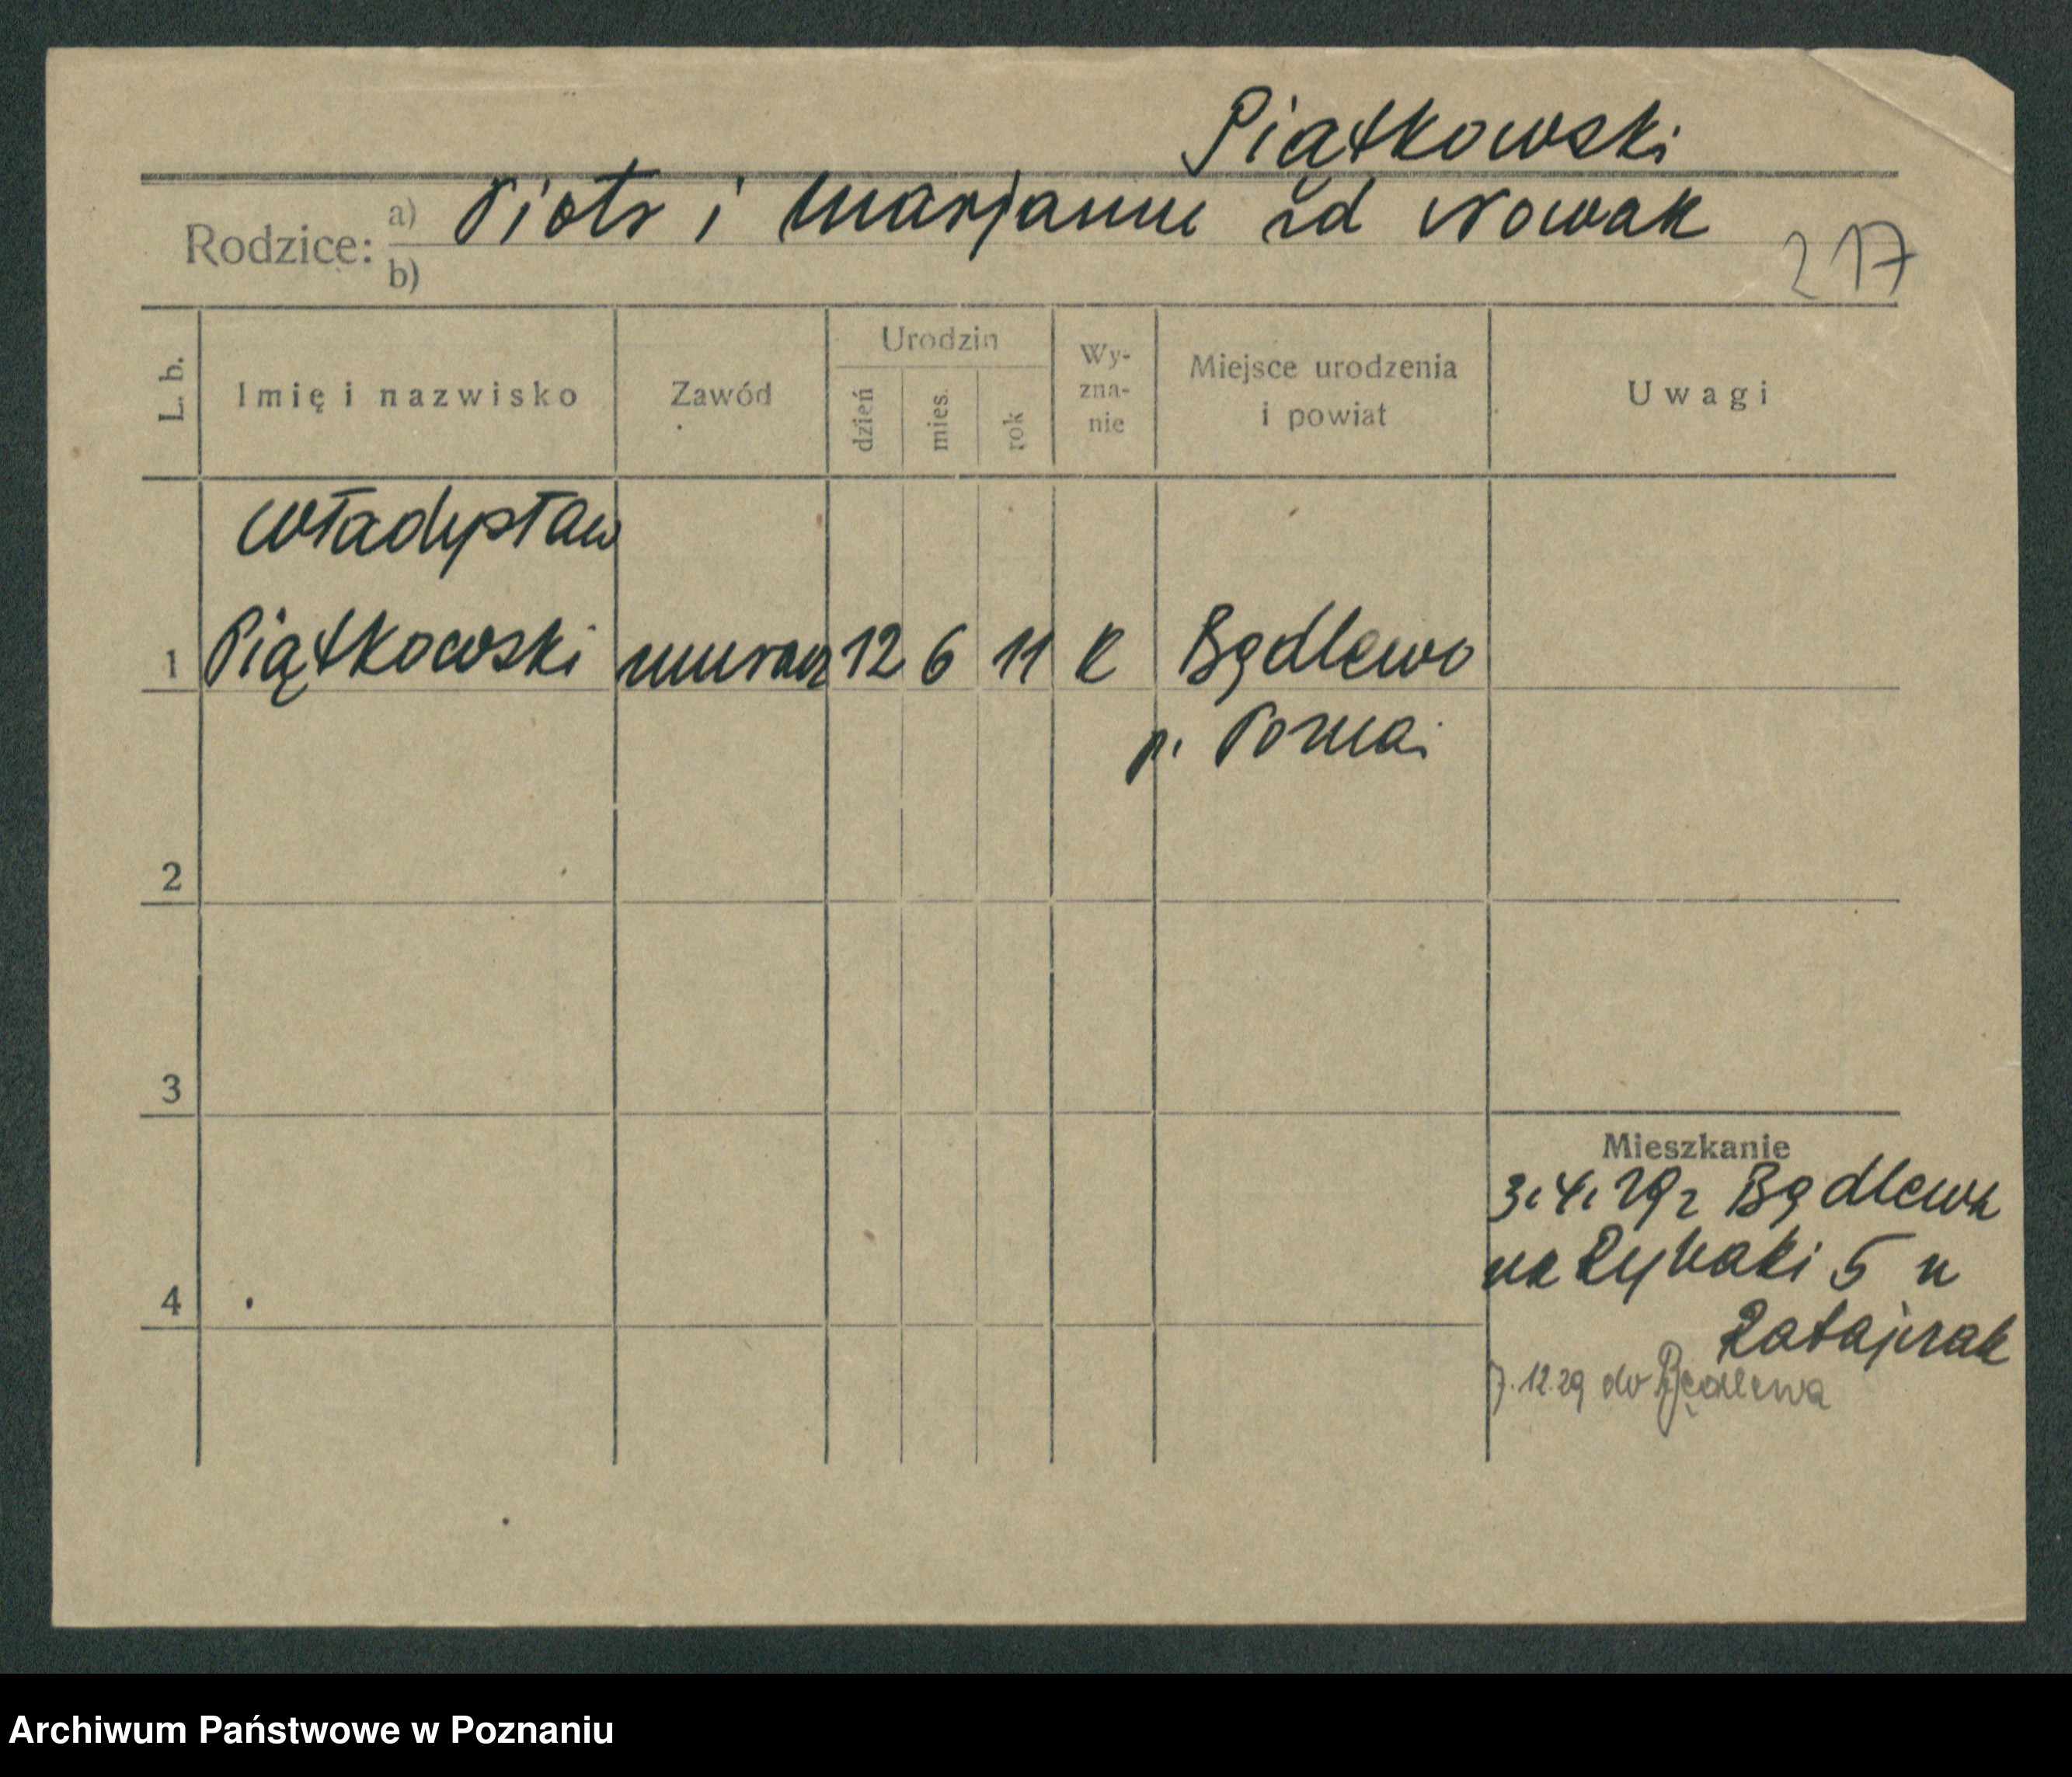 Piątkowski
Rodzice: a) Piotr i Marjanna zd Nowak
b)
217
L. b. Imię i nazwisko Zawód Urodzin dzień mies. rok Wy-zna-nie Miejsce urodzenia i powiat Uwagi
Władysław
1 Piątkowski murarz 12 6 11 k Bądlewo
p. Poznań
2
3
Mieszkanie
3.4.29 z Bądlewa
na Rybaki 5 u
4
Ratajczak
7.12.29 do Będlewa
Archiwum Państwowe w Poznaniu